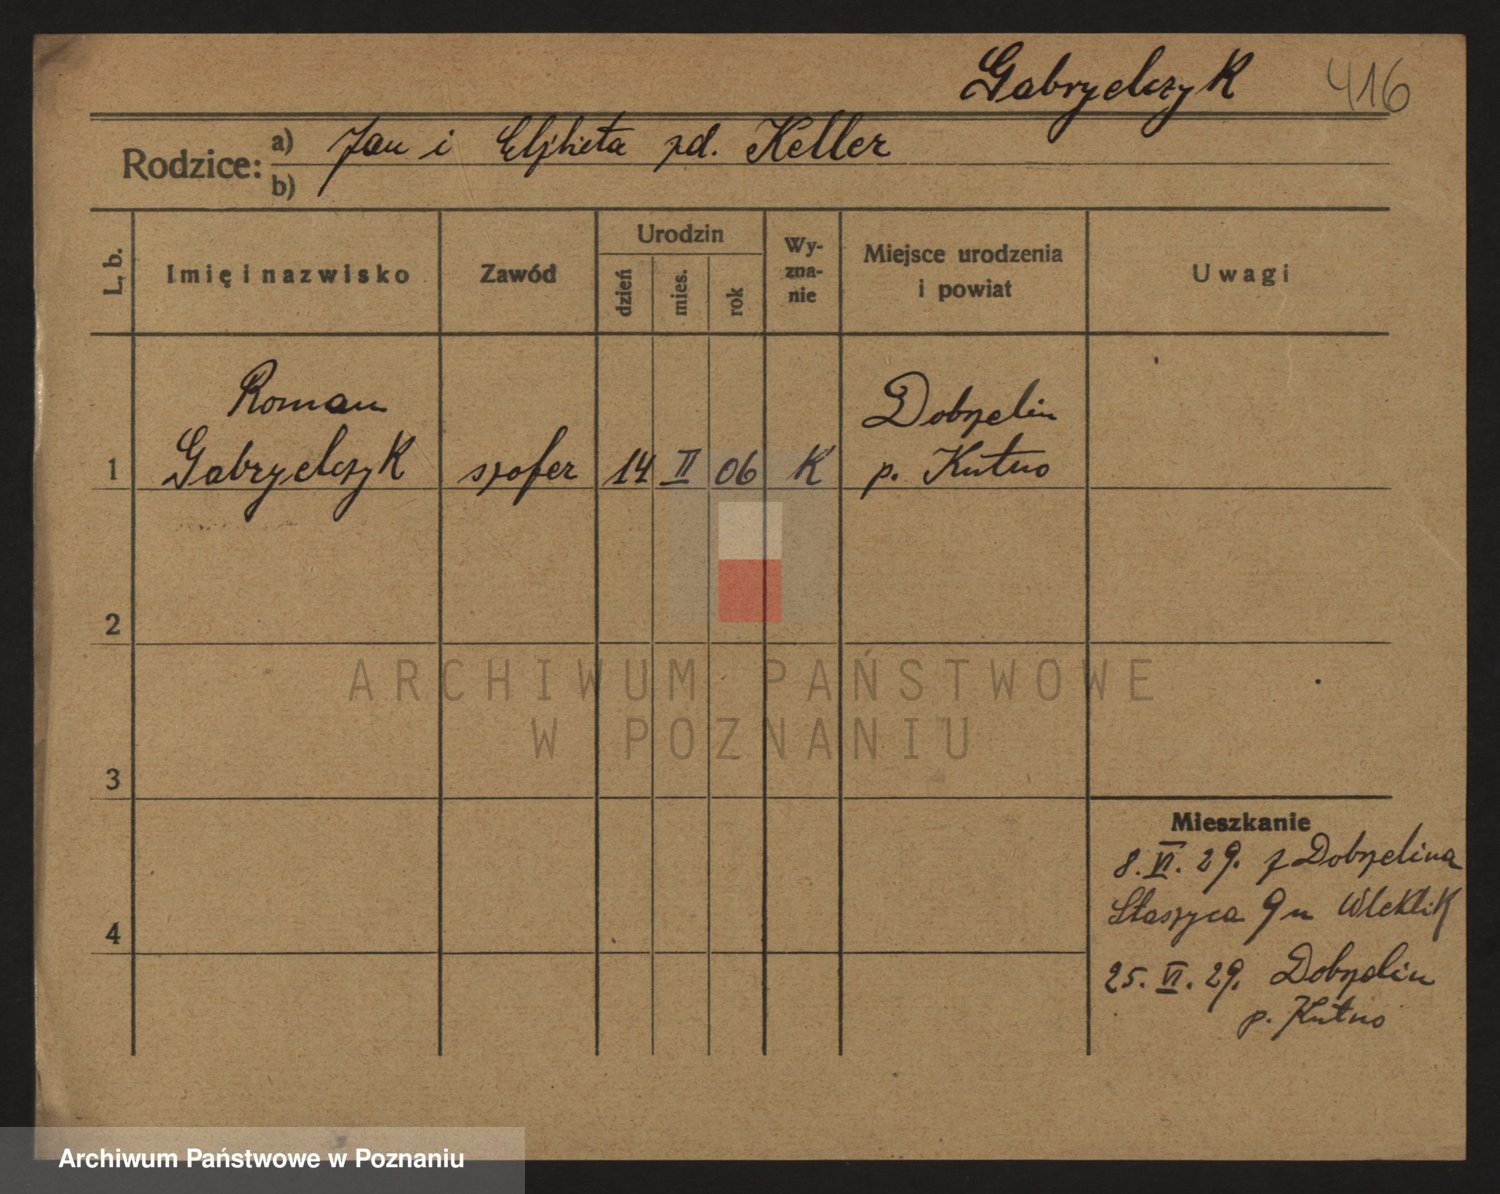 Gabryelczyk 416
Rodzice: a) Jan i Elżbieta zd. Keller
b)
L. b.
Imię i nazwisko
Zawód
Urodzin
dzień
mies.
rok
Wy-
zna-
nie
Miejsce urodzenia
i powiat
Uwagi
Roman
Dobrzelin
1 Gabryelczyk szofer 14 II 06 K p. Kutno
2
ARCHIWUM PAŃSTWOWE
W POZNANIU
3
Mieszkanie
8. VI. 29. z Dobrzelina
Staszyca 9 u Wleklik
4
25. VI. 29. Dobrzelin
p. Kutno
Archiwum Państwowe w Poznaniu